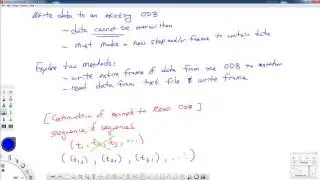 Write data to an existing ODB
- data cannot be overwritten
- must make a new step and/or frame to contain data
Explore two methods:
- write entire frame of data from one ODB to another
- read data from text file & write frame
[Continuation of example to Read ODB]
sequence of sequences
(t₁, t₂, t₃, ...)
((t₁,), (t₂,), (t₃,), ...)